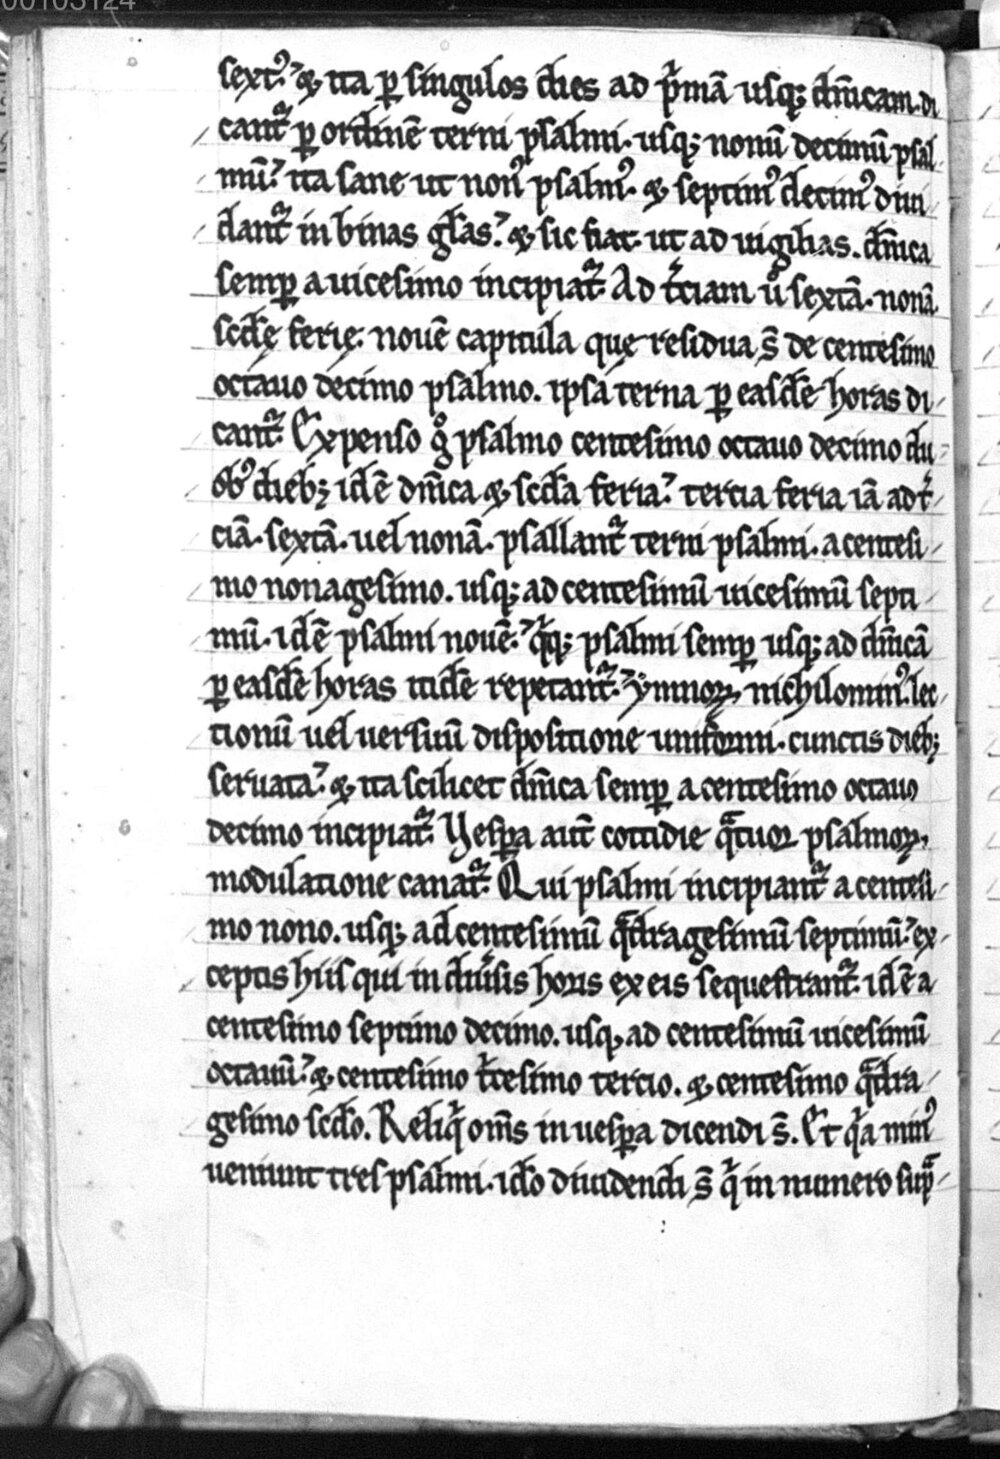 00103124
sextꝰ. ⁊ ita ꝑ singulos dies ad p̾mā usq; dn̄icam. di
cant᷑ ꝑ ordinē terni psalmi. usq; nonū decimū psal
mū. ita sane ut nonꝰ psalmꝰ. ⁊ septimꝰ decimꝰ diui
dant᷑ in binas gl̄as. ⁊ sic fiat. ut ad uigilias. dn̄ica
semꝑ a uicesimo incipiat᷑. Ad t̾ciam u̾o sextā. nonā
scd̄ę ferię. nouē capitula quę residua s̄ de centesimo
octauo decimo psalmo. ipsa terna ꝑ easdē horas di
cant᷑. Expenso g̊ psalmo centesimo octauo decimo du
obꝰ dieb; idē dn̄ica ⁊ scd̄a feria. tercia feria iā ad t̾
ciā. sextā. uel nonā. psallant᷑ terni psalmi. a centesi
mo nonagesimo. usq; ad centesimū uicesimū septi
mū. idē psalmi nouē. q̾q; psalmi semꝑ usq; ad dn̄icā
ꝑ easdē horas itidē repetant᷑. ymnoꝝ nichilominꝰ. lec
tionū uel uersuū dispositione uniformi. cunctis dieb;
seruata. ⁊ ita scilicet dn̄ica semꝑ a centesimo octauo
decimo incipiat᷑. Uesꝑa aut̄ cottidie q̄tuor psalmoꝝ
modulatione canat᷑. Qui psalmi incipiant᷑ a centesi
mo nono. usq; ad centesimū q̄dragesimū septimū. ex
ceptis hiis qui in diu̾sis horis ex eis sequestrant᷑. idē a
centesimo septimo decimo. usq; ad centesimū uicesimū
octauū. ⁊ centesimo t̾cesimo tercio. ⁊ centesimo q̄dra
gesimo scd̄o. Reliq̾ om̄s in uesꝑa dicendi s̄. Et q̾a minꝰ
ueniunt tres psalmi. id̄o diuidendi s̄ q̾ in numero sup̄